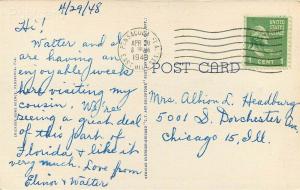 4/29/48
Hi!
Walter and I
are having an
enjoyable week
here visiting my
cousin. We're
seeing a great deal
of this part of
Florida & like it
very much. Love from
Elinor & Walter
PENSACOLA, FLA.
APR 29
1948
UNITED STATES
POSTAGE
1 CENT
POST CARD
Mrs. Albion L. Headburg
5001 S. Dorchester Av
Chicago 15, Ill.